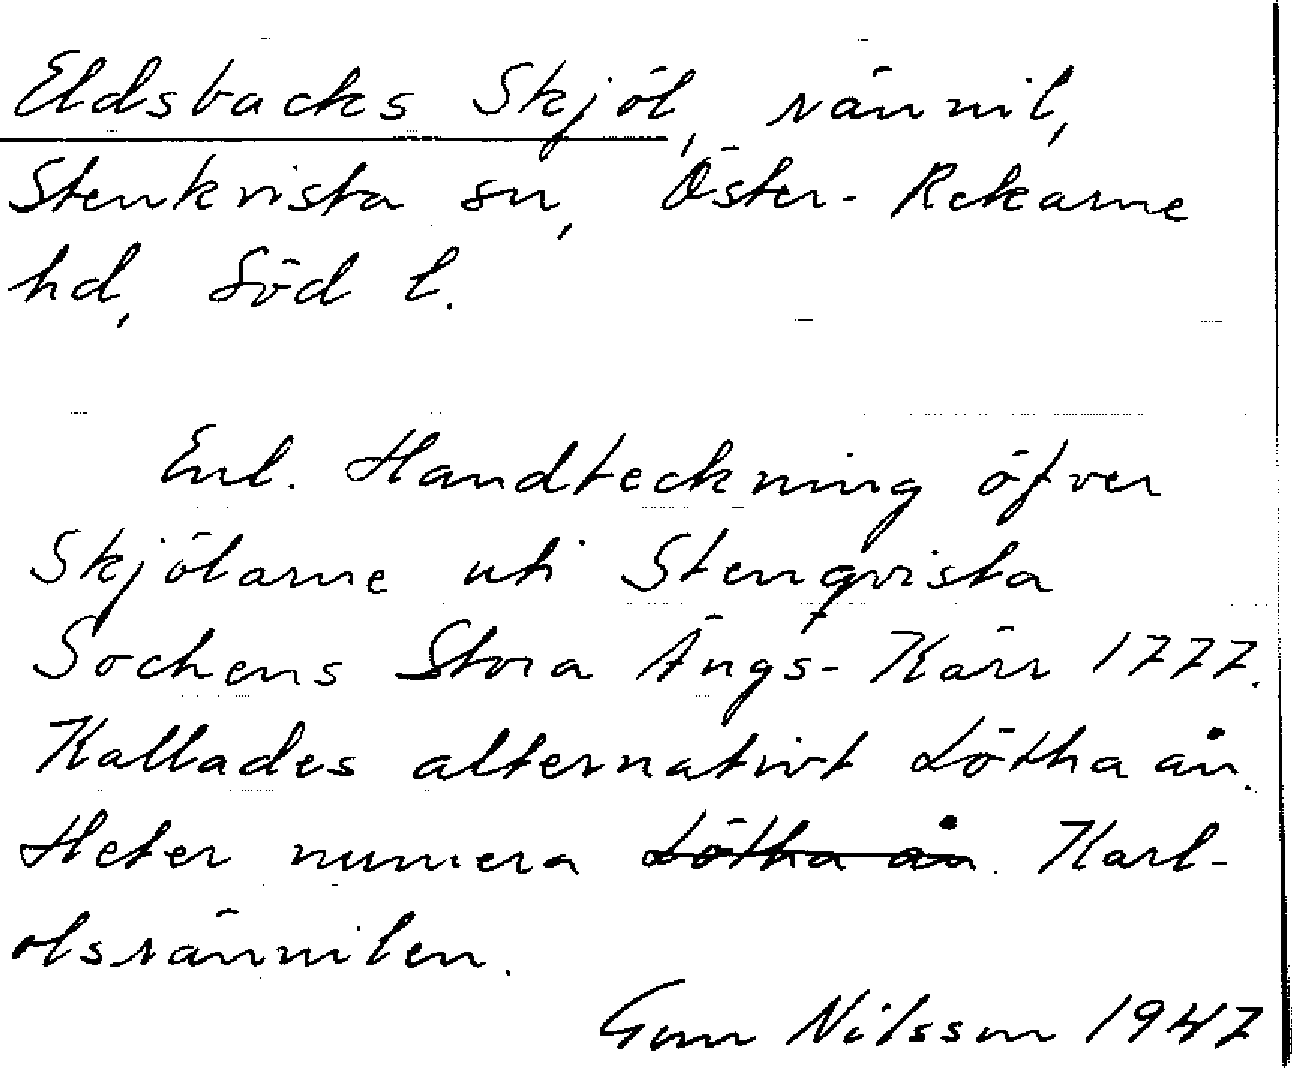 Eldsbacks Skjöl, rännil,
Stenkvista sn, Öster-Rekarne
hd, Söd l.
Enl. Handteckning öfver
Skjölarne uti Stenqvista
Sochens Stora Ängs-Kärr 1777.
Kallades alternativt Lötha ån.
Heter numera Lötha ån. Karl-
olsrännilen.
Gunn Nilsson 1947